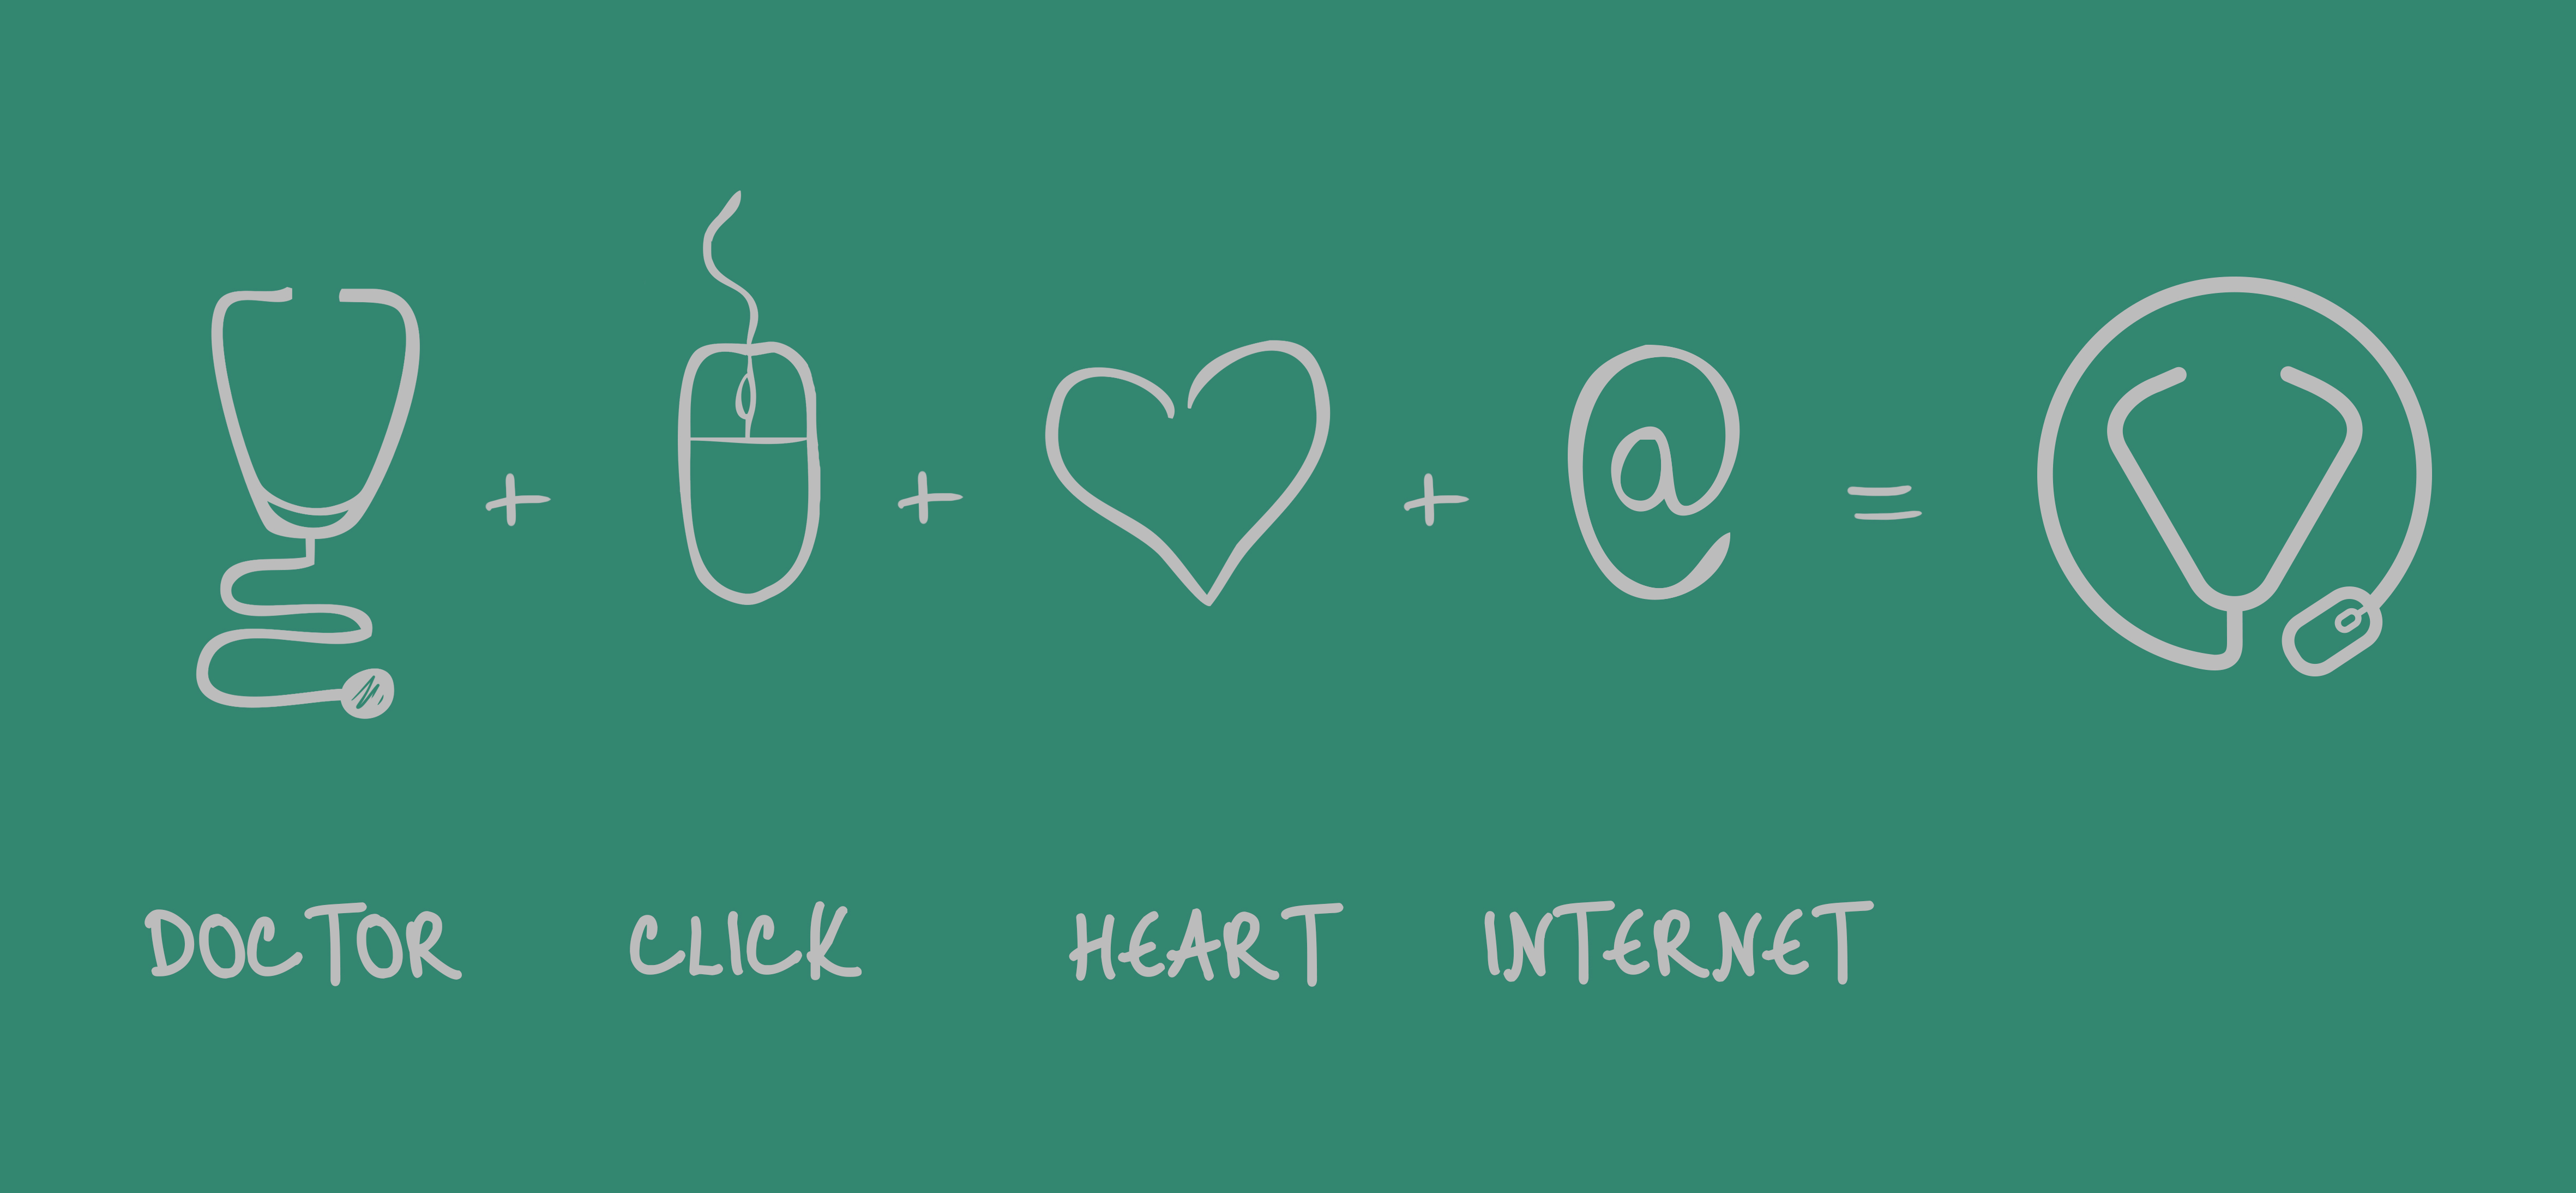 + + + @ =
DOCTOR CLICK HEART INTERNET